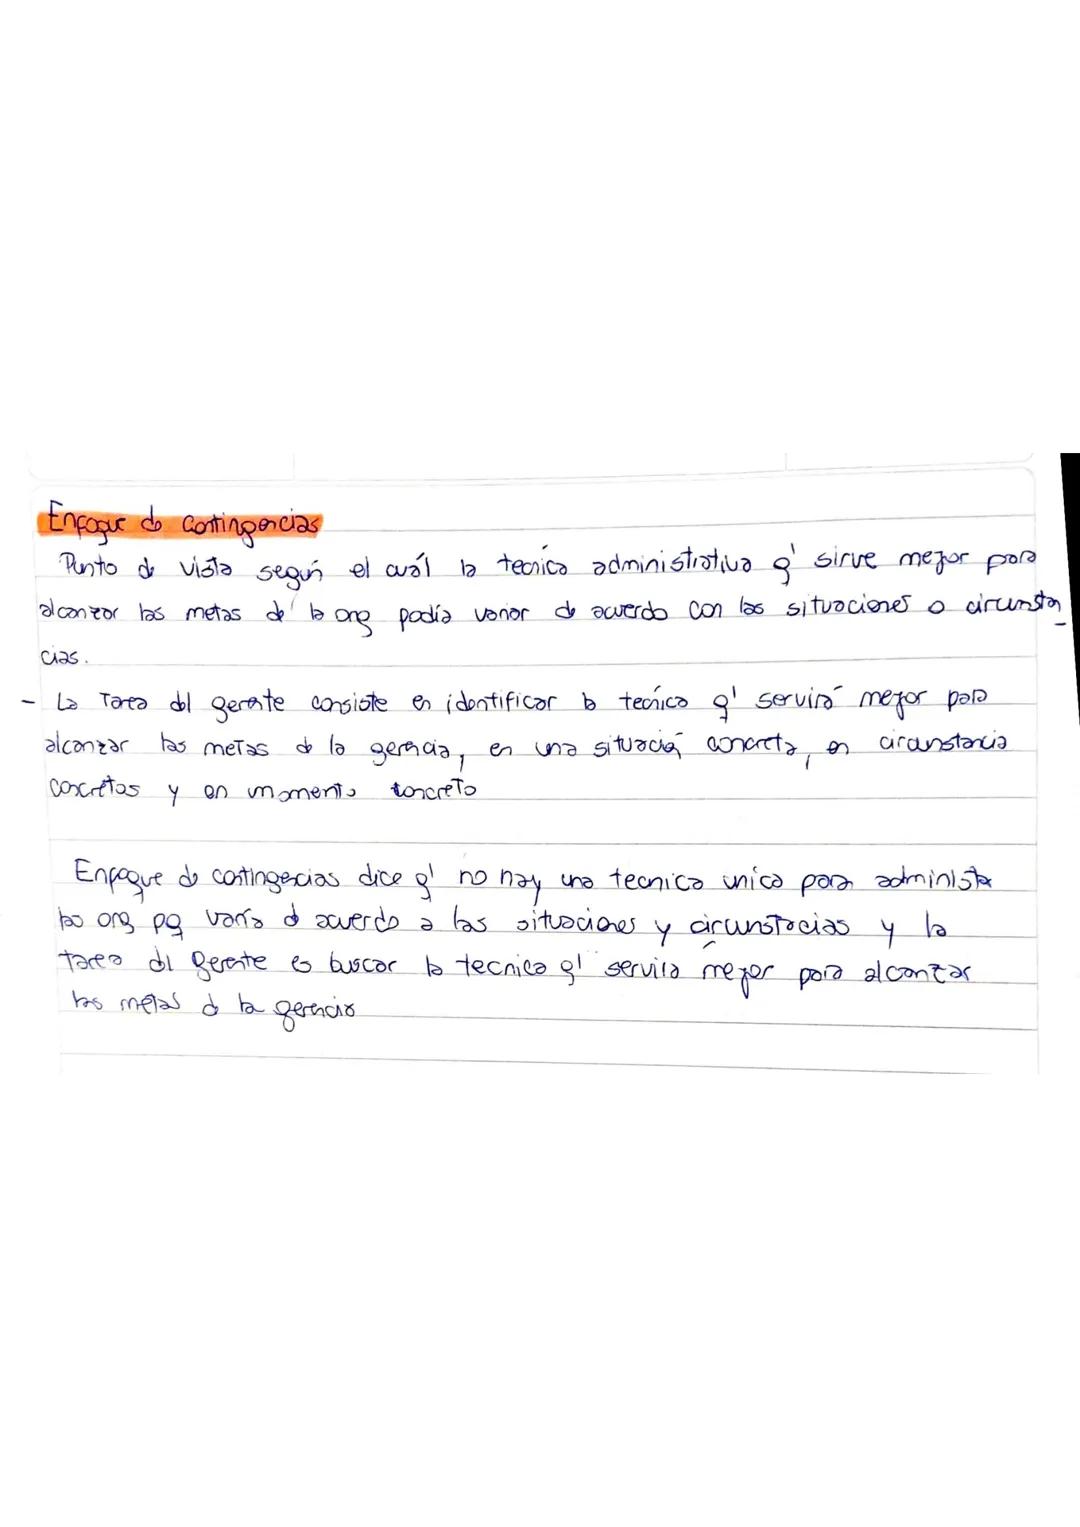 Enfoque de contingencias
Punto de vista según el cuál la tecnica administrativa q' sirve mejor para
alcanzar las metas de la org podía variar de acuerdo con las situaciones o circunstan_
cias.
- La Tarea dl gerente consiste en identificar la tecnica q' servirá mejor para
alcanzar las metas de la gerencia, en una situación concreta, en circunstancia
concretas y en momento concreto
Enfoque de contingencias dice q' no hay una tecnica unica para administra
las org pq varía d acuerdo a las situaciones y circunstacias y la
tarea dl gerente es buscar la tecnica q' servira mejor para alcanzar
las metas d la gerencia